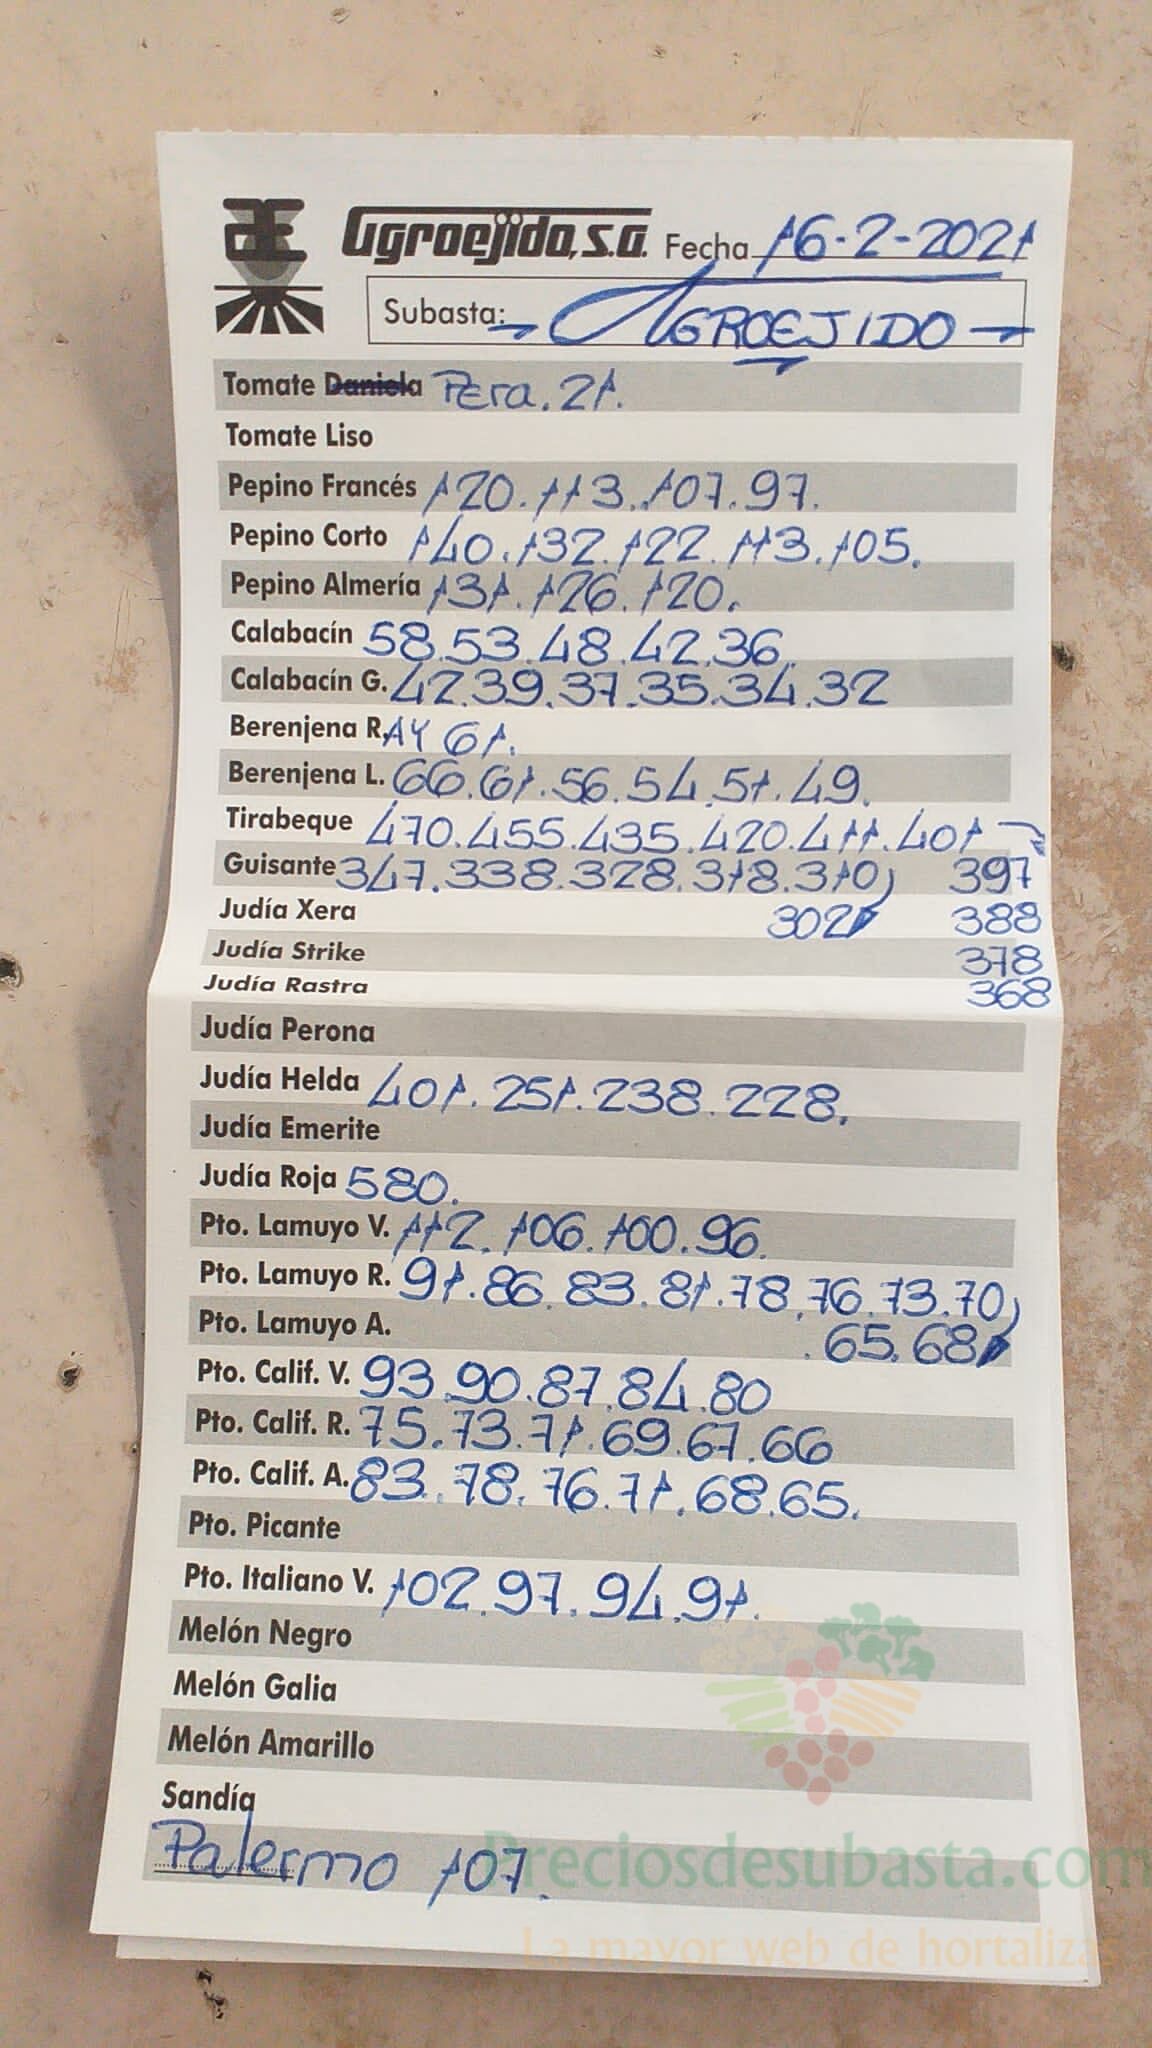 Agroejido, S.A. Fecha 16-2-2021
Subasta: AGROEJIDO
Tomate Daniela Pera. 21.
Tomate Liso
Pepino Francés 120. 113. 107. 97.
Pepino Corto 140. 132. 122. 113. 105.
Pepino Almería 131. 126. 120.
Calabacín 58. 53. 48. 42. 36.
Calabacín G. 42. 39. 37. 35. 34. 32
Berenjena R. AY 61.
Berenjena L. 66. 61. 56. 54. 51. 49.
Tirabeque 470. 455. 435. 420. 411. 401
Guisante 347. 338. 328. 318. 310 397
Judía Xera 302 388
Judía Strike 378
Judía Rastra 368
Judía Perona
Judía Helda 401. 251. 238. 228.
Judía Emerite
Judía Roja 580.
Pto. Lamuyo V. 112. 106. 100. 96.
Pto. Lamuyo R. 91. 86. 83. 81. 78. 76. 73. 70
Pto. Lamuyo A. . 65. 68
Pto. Calif. V. 93. 90. 87. 84. 80
Pto. Calif. R. 75. 73. 71. 69. 67. 66
Pto. Calif. A. 83. 78. 76. 71. 68. 65.
Pto. Picante
Pto. Italiano V. 102. 97. 94. 91.
Melón Negro
Melón Galia
Melón Amarillo
Sandía
Palermo 107.
Preciosdesubasta.com
La mayor web de hortalizas